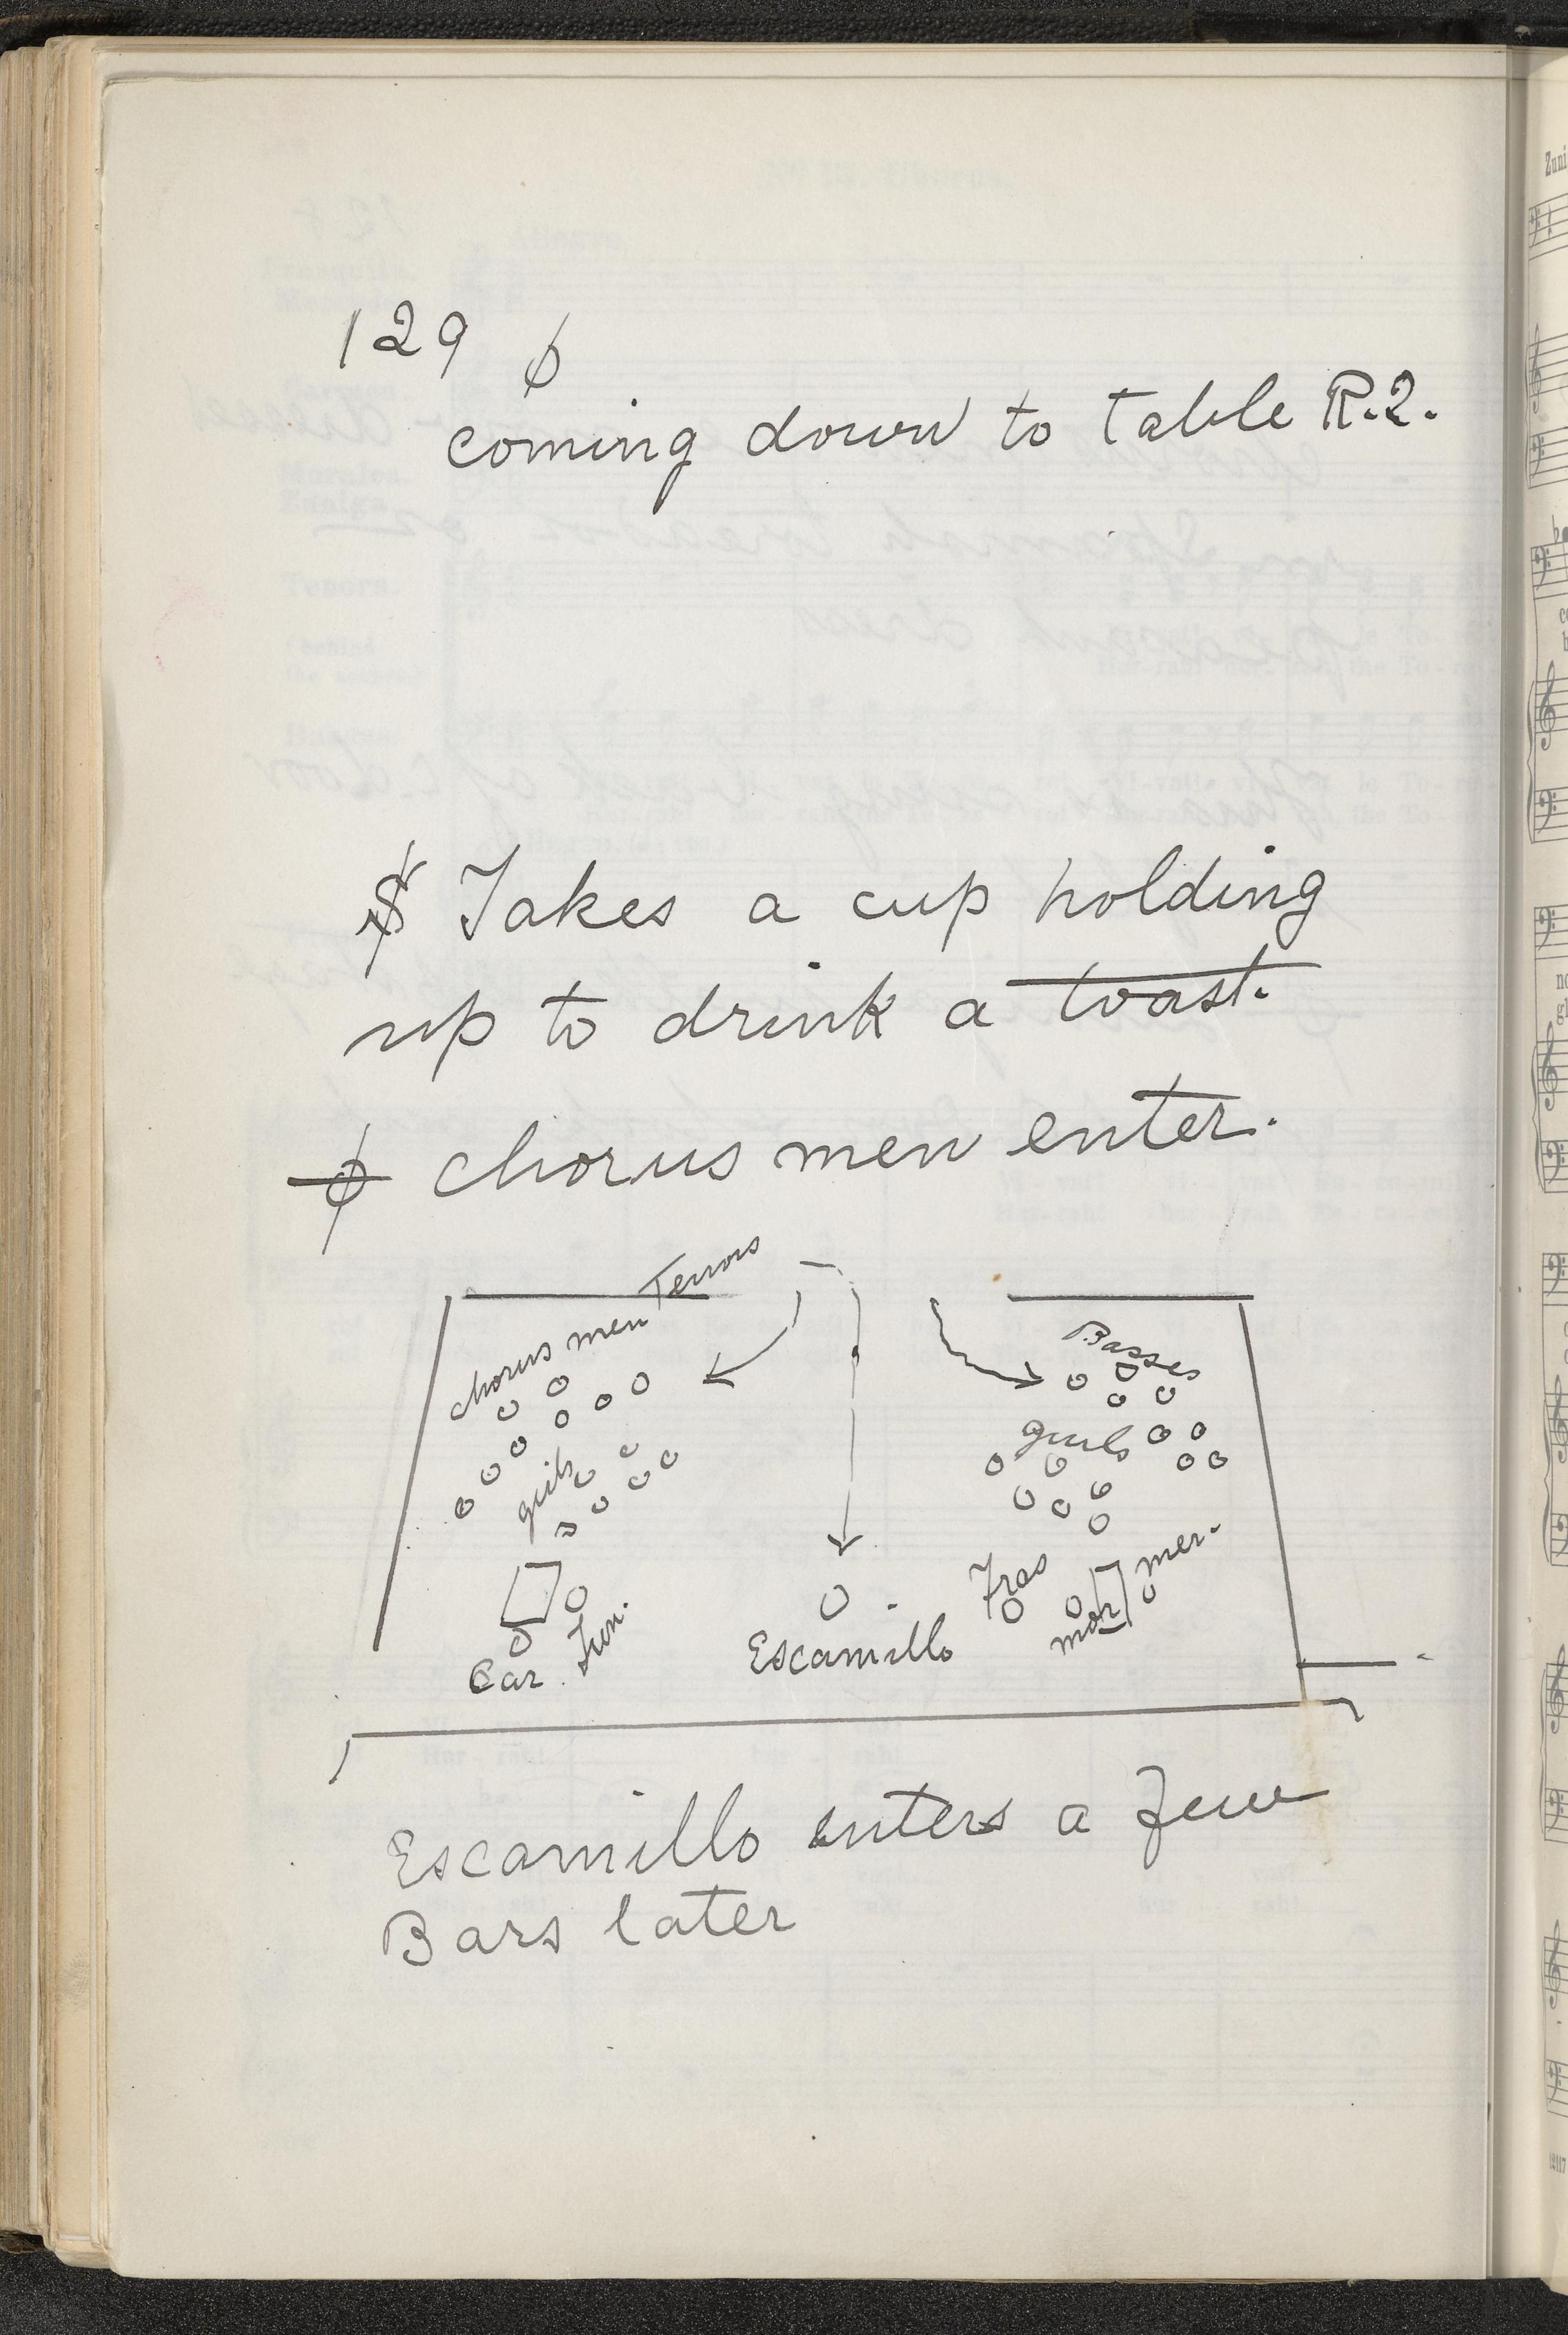 129 ϕ
coming down to table R.2.
$ Takes a cup holding
up to drink a toast.
ϕ chorus men enter.
chorus men Tenors
Basses
girls
girls
Fras
mer.
mor
Escamillo
Car.
Zun.
Escamillo enters a few
Bars later
Zuni